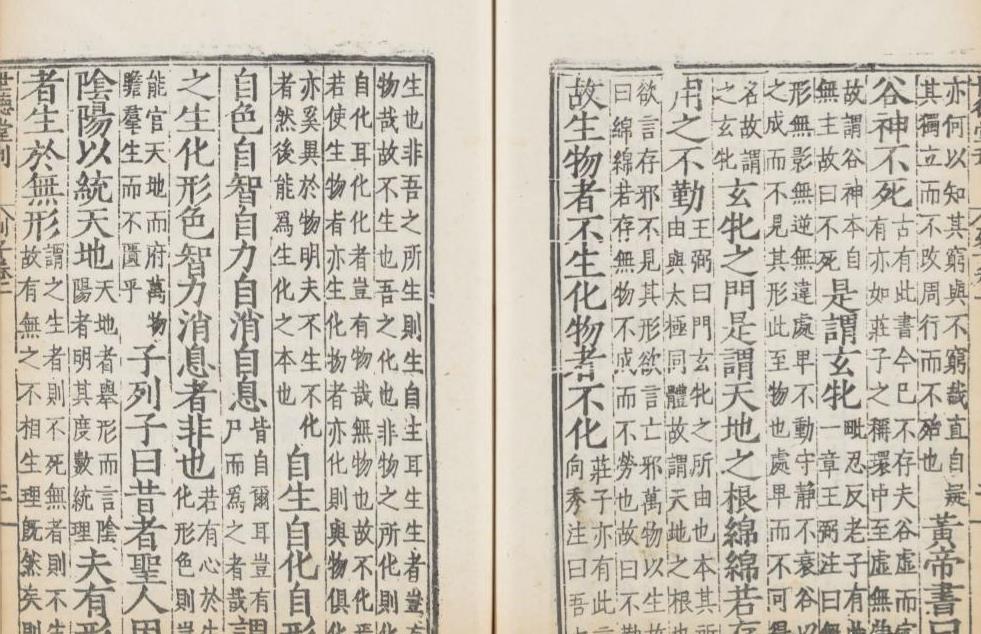 亦何以知其窮與不窮哉直自疑
其獨立而不改周行而不殆也
黃帝書曰
谷神不死
古有此書今已不存夫谷虛而宅
有亦如莊子之稱環中至虛無物
故謂谷神本自
無主故曰不死
是謂玄牝
毗忍反老子有此
一章王弼注曰無
形無影無逆無違處卑不動守靜不衰谷以
之成而不見其形此至物也處卑而不可得
名故謂
之玄牝
玄牝之門是謂天地之根綿綿若存
用之不勤
王弼曰門玄牝之所由也本其所
由與太極同體故謂天地之根也
欲言存邪不見其形欲言亡邪萬物以生故
曰綿綿若存無物不成而不勞也故曰不勤
故生物者不生化物者不化
莊子亦有此
向秀注曰吾
生也非吾之所生則生自生耳生生者豈有
物哉故不生也吾之化也非物之所化則
自化耳化化者豈有物哉無物也故不化焉
若使生物者亦生化物者亦化則與物俱
亦奚異於物明夫不生不化
者然後能爲生化之本也
自生自化自形
自色自智自力自消自息
皆自爾耳豈有
尸而爲之者哉
謂
之生化形色智力消息者非也
若有心於生
化形色則豈
能官天地而府萬物
贍羣生而不匱乎
子列子曰昔者聖人因
陰陽以統天地
天地者舉形而言陰
陽者明其度數統理
夫有形
者生於無形
謂之生者則不死無者則不生
故有無之不相生理旣然矣則
世德堂刊
列子卷一
三